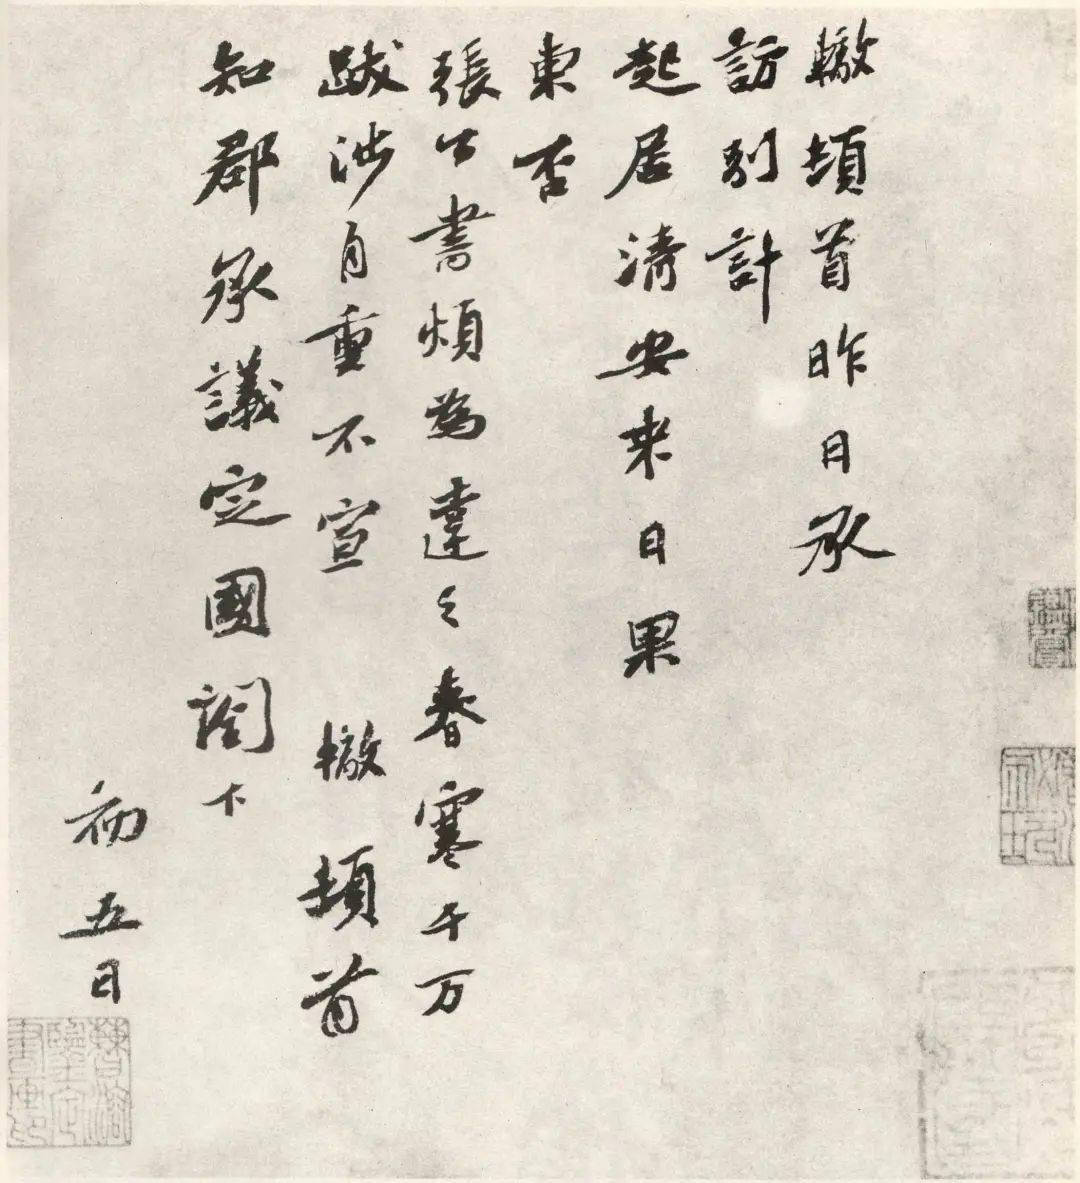 轍頓首昨日承
訪別計
起居清安来日果
東否
張公書煩為達之春寒千万
跋涉自重不宣 轍頓首
知郡承議定國閤下
初五日
曹溶
鑒定
書畫印